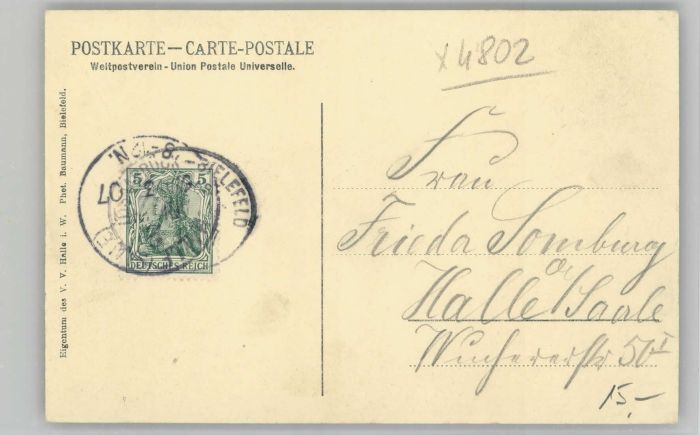 POSTKARTE—CARTE-POSTALE
Weltpostverein - Union Postale Universelle.
x4802
Eigentum des V. V. Halle i. W. Phot. Baumann, Bielefeld.
BIELEFELD
07
5 5
DEUTSCHES REICH
Frau
Frieda Somburg
Halle a/Saale
Wuchererstr 50 I
15,-